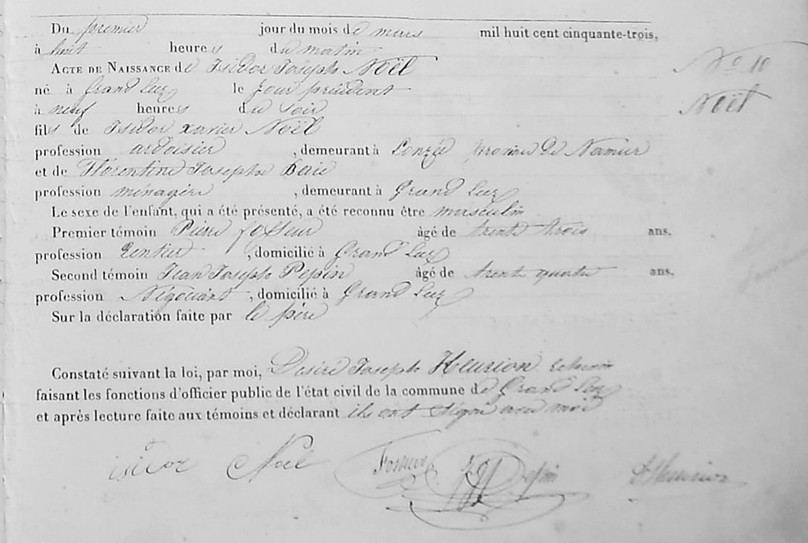 Du premier jour du mois de mars mil huit cent cinquante-trois,
à huit heures du matin
ACTE DE NAISSANCE de Isidor Joseph Noël
N° 10
né à Grand Leez le jour précédent
Noël
à neuf heures du soir
fils de Isidor Xavier Noël
profession ardoisier, demeurant à Lonzée province de Namur
et de Florentine Josephe
profession ménagère, demeurant à Grand Leez
Le sexe de l'enfant, qui a été présenté, a été reconnu être masculin
Premier témoin Pierre âgé de trente trois ans.
profession Rentier, domicilié à Grand Leez
Second témoin Jean Joseph Pepin âgé de trente quatre ans.
profession Négociant, domicilié à Grand Leez
Sur la déclaration faite par le père
Constaté suivant la loi, par moi, Désiré Joseph Heurion Echevin
faisant les fonctions d'officier public de l'état civil de la commune de Grand Leez
et après lecture faite aux témoins et déclarant ils ont signé avec moi
isidor Noël Pepin Heurion